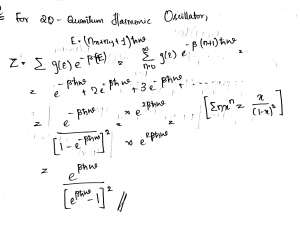 For 2D - Quantum Harmonic Oscillator,
E = (nx+ny+1)ħω
Z = Σ g(E) e^-βE = Σ_{n=0}^{∞} g(E) e^-β(n+1)ħω =
= e^-βħω + 2e^-2βħω + 3e^-3βħω + ........
= e^-βħω / [1-e^-βħω]^2 × e^2βħω / e^2βħω = [Σnx^n = x/(1-x)^2]
= e^βħω / [e^βħω - 1]^2 //